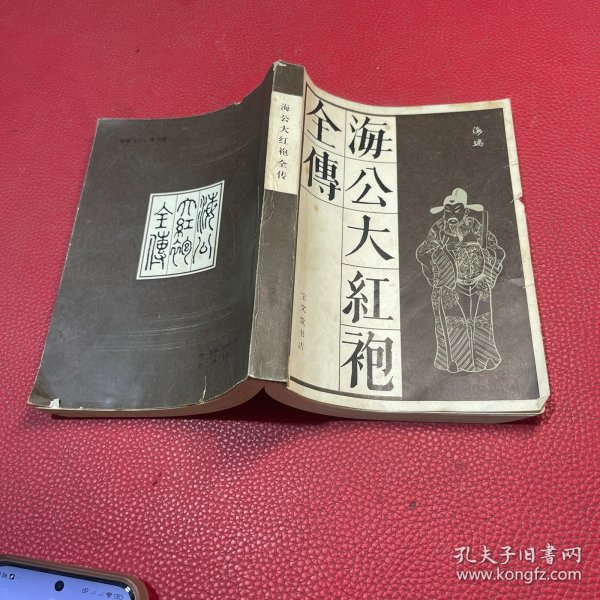 海公大紅袍
全傳
海瑞
宝文堂书店
海公大红袍全传
海公
大紅袍
全傳
孔夫子旧书网
www.kongfz.com